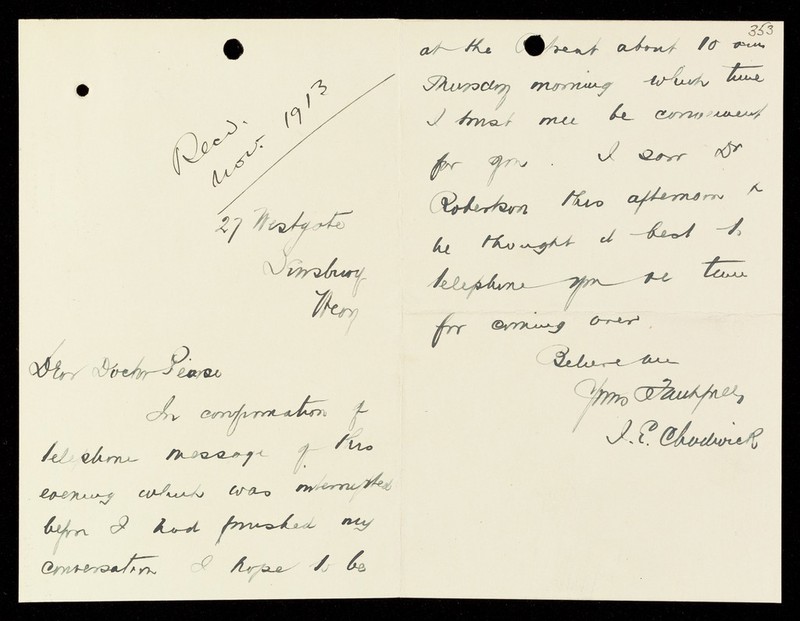 Recd.
Nov. 1913
27 Westgate
Dewsbury
Mon
Dear Doctor Pierce
In confirmation of
telephone message of this
evening which was interrupted
before I had finished my
conversation I hope to be
353
at the Retreat about 10 am
Thursday morning which time
I trust will be convenient
for you. I saw Dr
Robertson this afternoon &
he thought it best to
telephone you re time
for coming over.
Believe me
Yours Faithfully
J. E. Chadwick